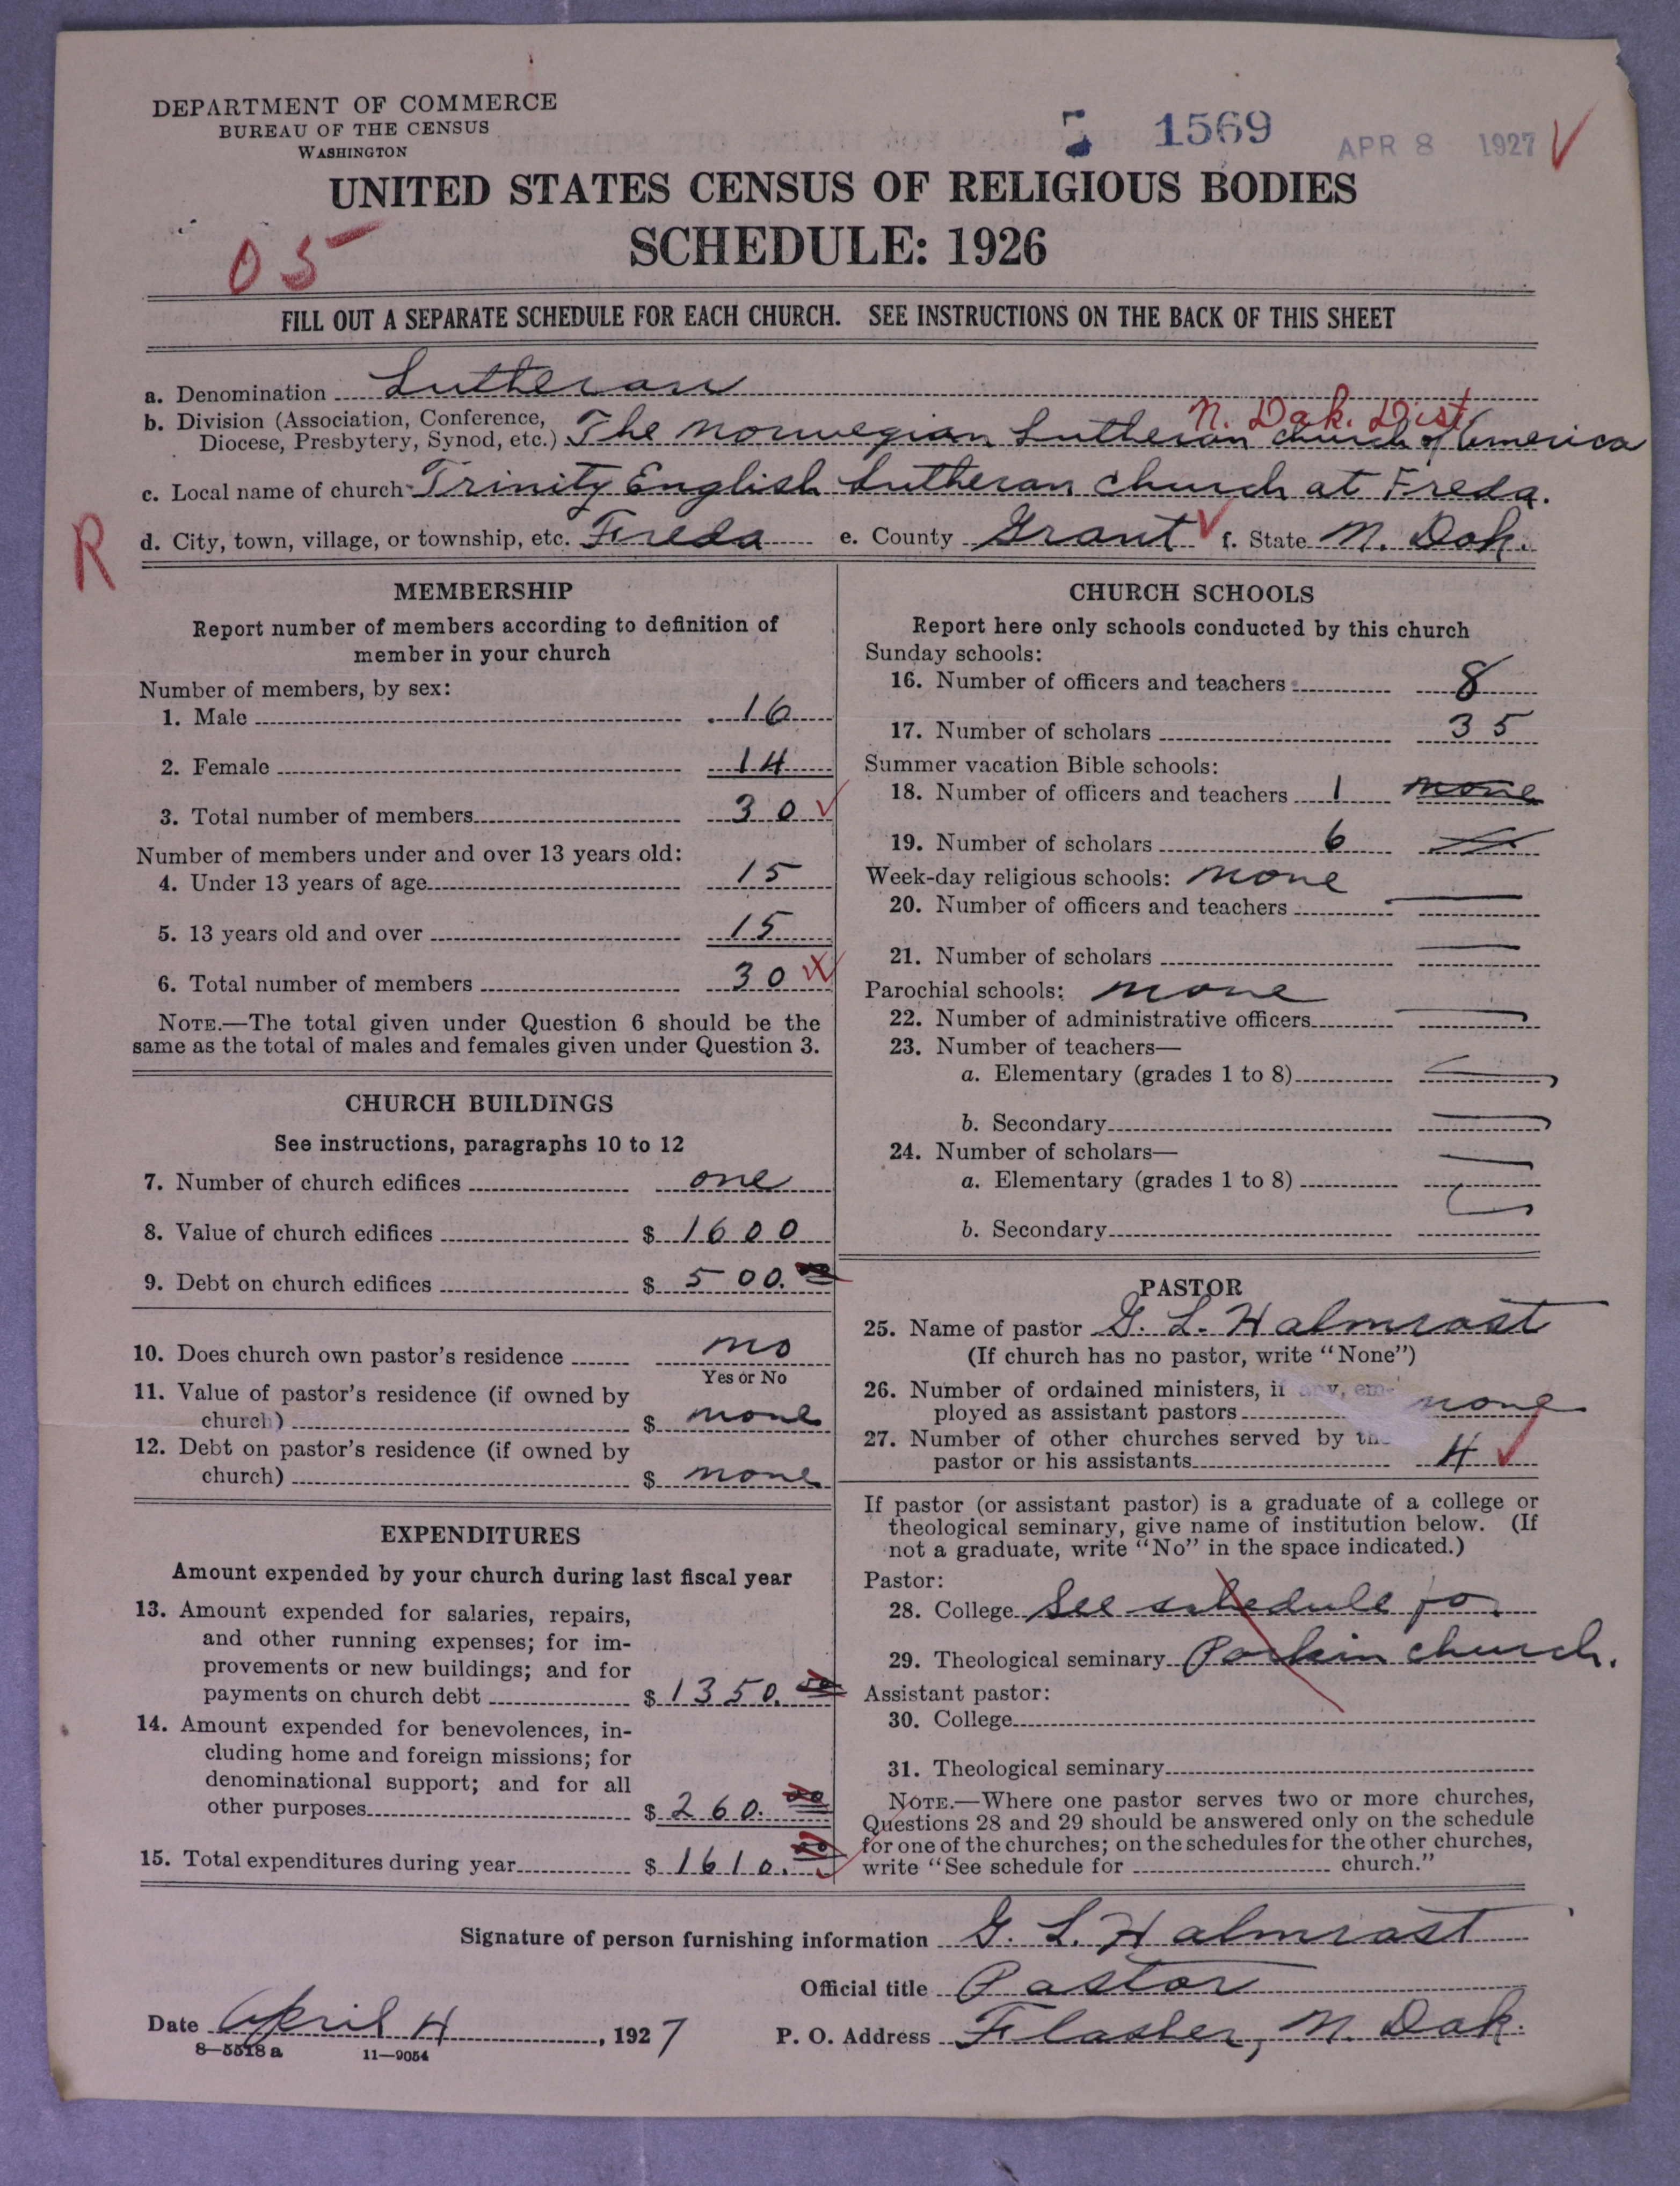 DEPARTMENT OF COMMERCE
BUREAU OF THE CENSUS
WASHINGTON
5 1569 APR 8 1927
UNITED STATES CENSUS OF RELIGIOUS BODIES
SCHEDULE: 1926
05
FILL OUT A SEPARATE SCHEDULE FOR EACH CHURCH. SEE INSTRUCTIONS ON THE BACK OF THIS SHEET
a. Denomination Lutheran
N. Dak. Dist
b. Division (Association, Conference,
Diocese, Presbytery, Synod, etc.) The Norwegian Lutheran Church of America
c. Local name of church Trinity English Lutheran Church at Freda.
R
d. City, town, village, or township, etc. Freda e. County Grant f. State N. Dak.
MEMBERSHIP
Report number of members according to definition of
member in your church
Number of members, by sex:
1. Male 16
2. Female 14
3. Total number of members 30
Number of members under and over 13 years old:
4. Under 13 years of age 15
5. 13 years old and over 15
6. Total number of members 30
NOTE.—The total given under Question 6 should be the
same as the total of males and females given under Question 3.
CHURCH BUILDINGS
See instructions, paragraphs 10 to 12
7. Number of church edifices one
8. Value of church edifices $ 1600
9. Debt on church edifices $ 500.
10. Does church own pastor's residence no
Yes or No
11. Value of pastor's residence (if owned by
church) $ none
12. Debt on pastor's residence (if owned by
church) $ none
EXPENDITURES
Amount expended by your church during last fiscal year
13. Amount expended for salaries, repairs,
and other running expenses; for im-
provements or new buildings; and for
payments on church debt $ 1350.
14. Amount expended for benevolences, in-
cluding home and foreign missions; for
denominational support; and for all
other purposes $ 260.
15. Total expenditures during year $ 1610.
CHURCH SCHOOLS
Report here only schools conducted by this church
Sunday schools:
16. Number of officers and teachers 8
17. Number of scholars 35
Summer vacation Bible schools:
18. Number of officers and teachers 1 none
19. Number of scholars 6
Week-day religious schools: none
20. Number of officers and teachers
21. Number of scholars
Parochial schools: none
22. Number of administrative officers
23. Number of teachers—
a. Elementary (grades 1 to 8)
b. Secondary
24. Number of scholars—
a. Elementary (grades 1 to 8)
b. Secondary
PASTOR
25. Name of pastor G. L. Halmrast
(If church has no pastor, write "None")
26. Number of ordained ministers, if any, em-
ployed as assistant pastors none
27. Number of other churches served by the
pastor or his assistants 4
If pastor (or assistant pastor) is a graduate of a college or
theological seminary, give name of institution below. (If
not a graduate, write "No" in the space indicated.)
Pastor:
28. College See schedule fo.
29. Theological seminary Porkin church.
Assistant pastor:
30. College
31. Theological seminary
NOTE.—Where one pastor serves two or more churches,
Questions 28 and 29 should be answered only on the schedule
for one of the churches; on the schedules for the other churches,
write "See schedule for church."
Signature of person furnishing information G. L. Halmrast
Official title Pastor
Date April 4, 1927 P. O. Address Flasher, N. Dak.
8—5518a 11—9054